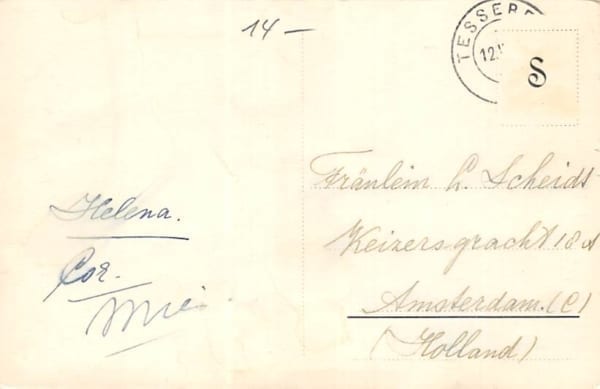 14 –
TESSERE
12.
S
Helena.
Cor.
Mies.
Fräulein L. Scheidt
Keizersgracht 18 A
Amsterdam. (C)
(Holland)